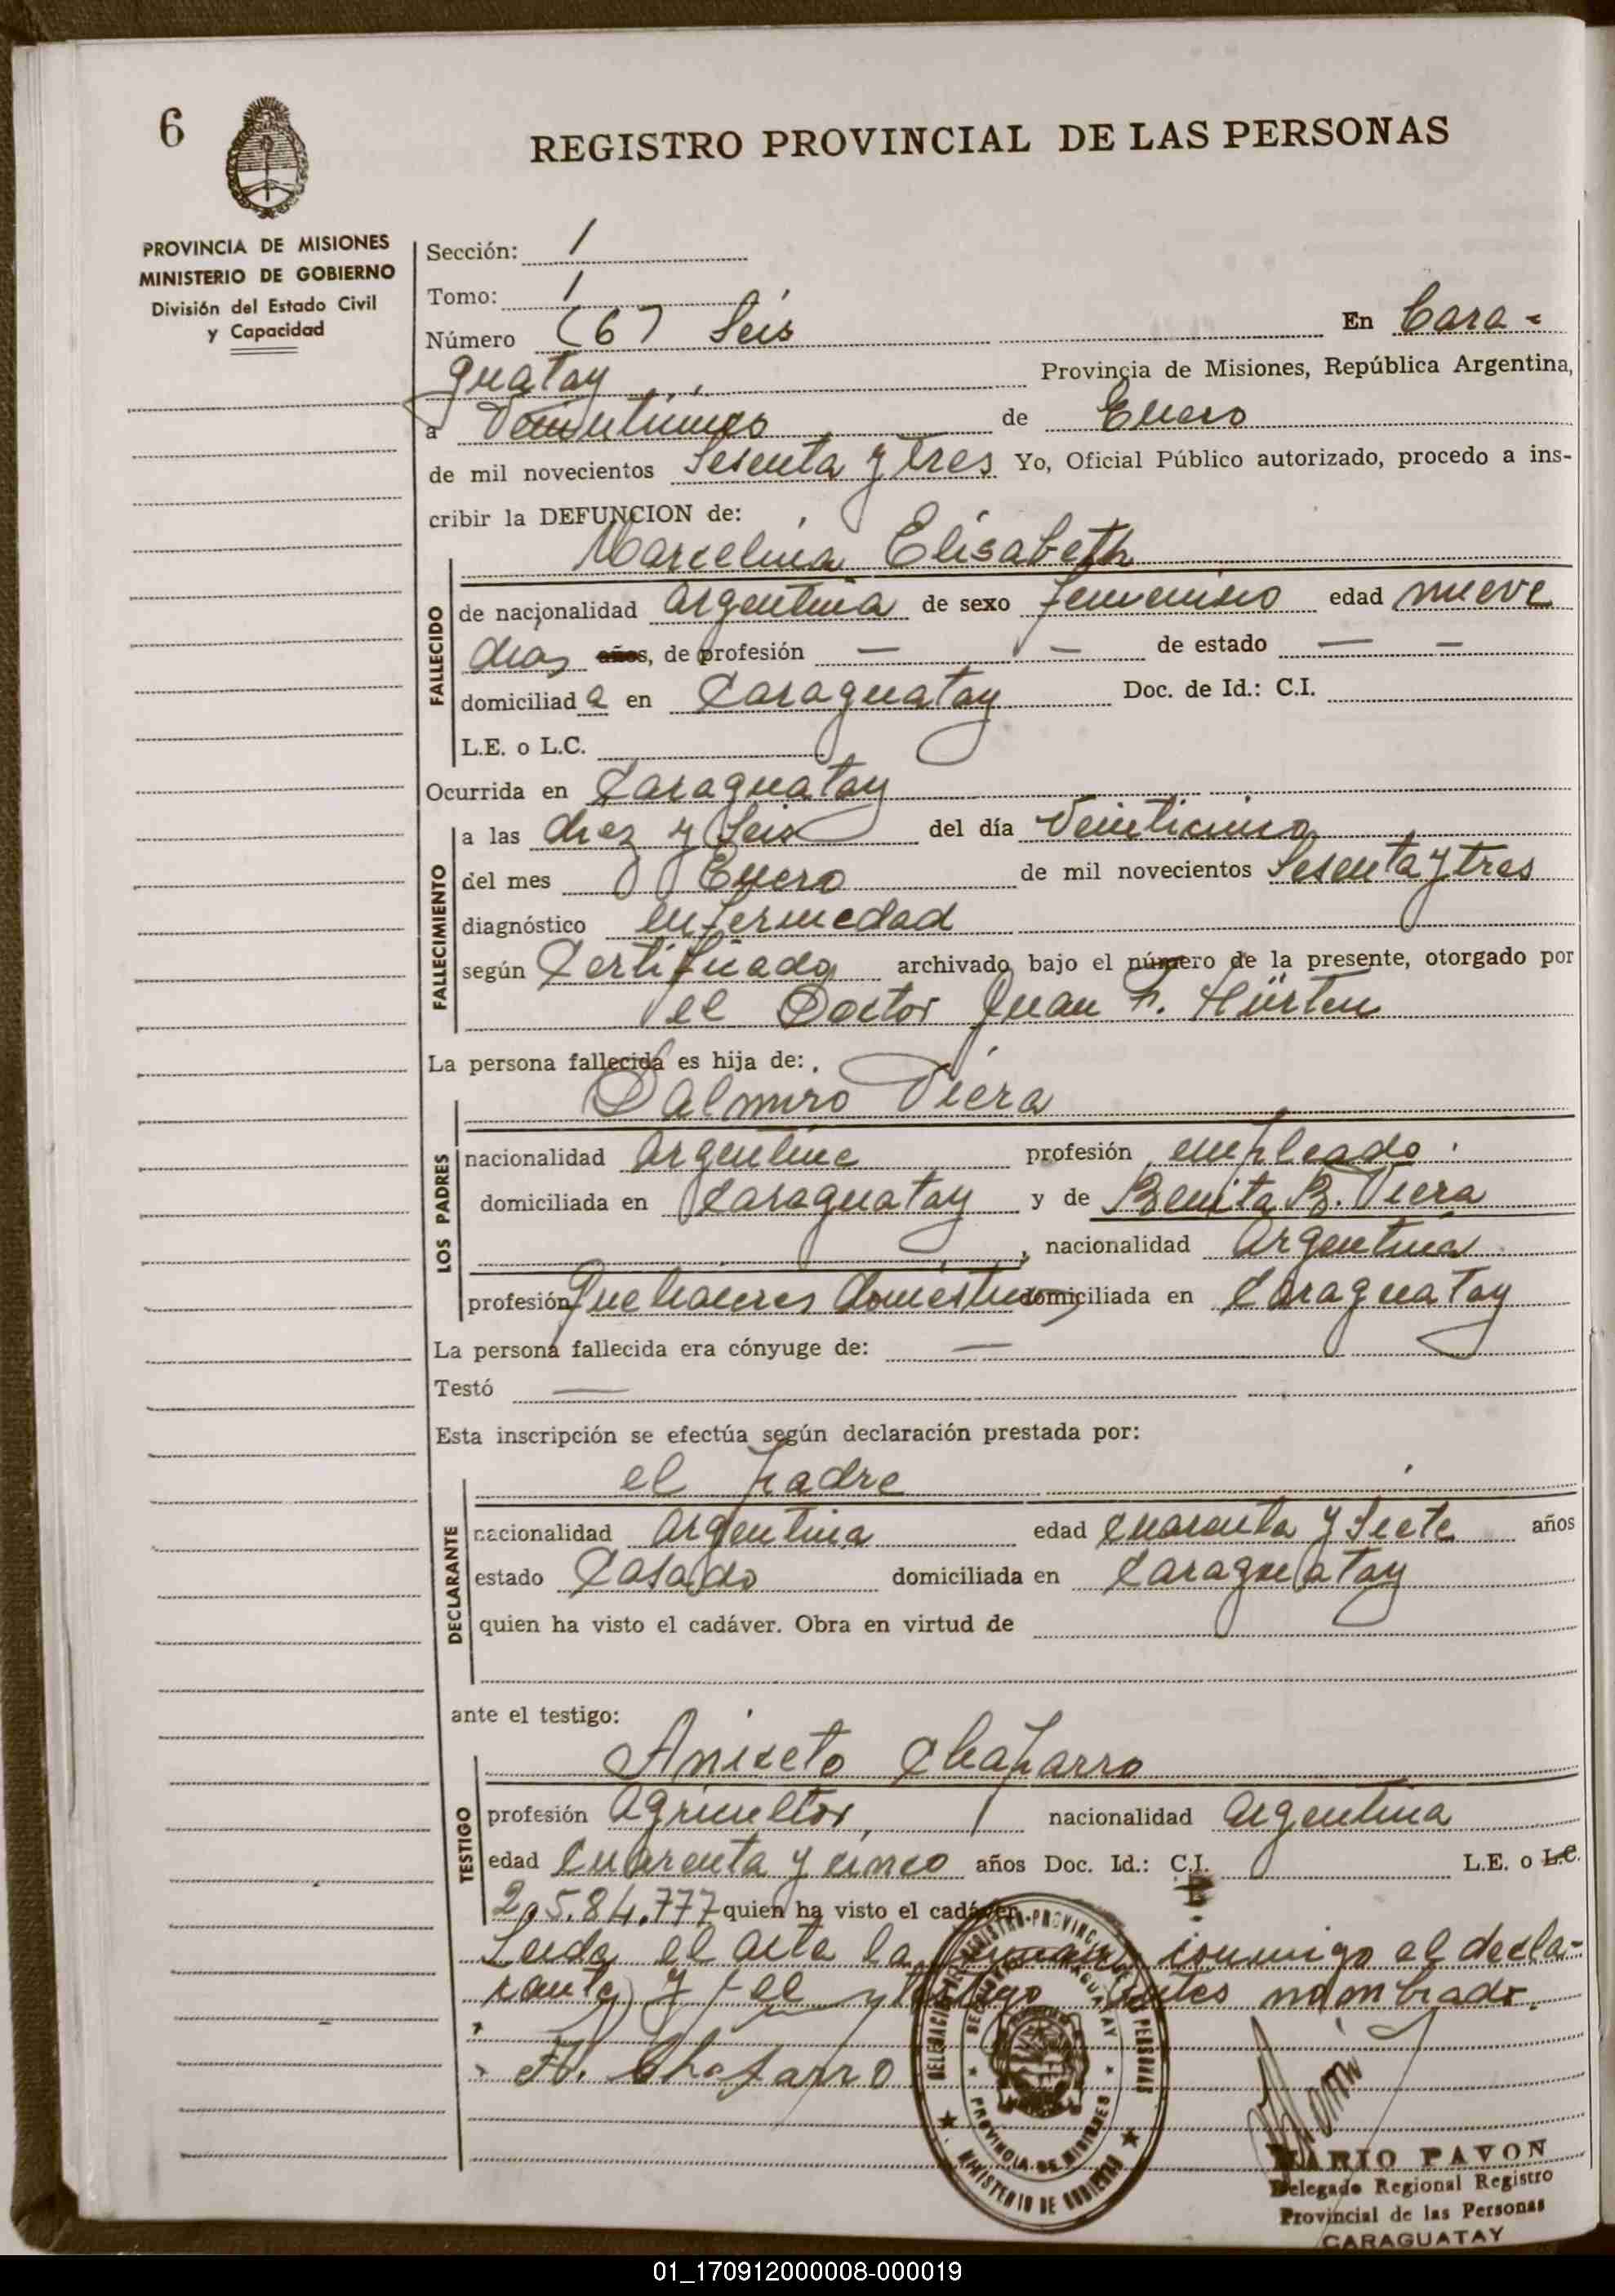 6
REGISTRO PROVINCIAL DE LAS PERSONAS
PROVINCIA DE MISIONES
MINISTERIO DE GOBIERNO
División del Estado Civil
y Capacidad
Sección: 1
Tomo: 1
Número (6) Seis En Cara-
guatay Provincia de Misiones, República Argentina,
a de Enero
de mil novecientos Sesenta y tres Yo, Oficial Público autorizado, procedo a ins-
cribir la DEFUNCION de:
Marcelina Elisabeth
FALLECIDO
de nacionalidad Argentina de sexo femenino edad nueve
dias años, de profesión — — de estado — —
domiciliada en Caraguatay Doc. de Id.: C.I.
L.E. o L.C.
Ocurrida en Caraguatay
FALLECIMIENTO
a las diez y Seis del día Veinticinco
del mes Enero de mil novecientos Sesenta y tres
diagnóstico enfermedad
según Certificado archivado bajo el número de la presente, otorgado por
el Doctor Juan F. Hürten
La persona fallecida es hija de:
Dalmiro Viera
LOS PADRES
nacionalidad Argentine profesión empleado
domiciliada en Caraguatay y de Benita B. Viera
, nacionalidad Argentina
profesión Quehaceres domésticos domiciliada en Caraguatay
La persona fallecida era cónyuge de: —
Testó —
Esta inscripción se efectúa según declaración prestada por:
el padre
DECLARANTE
nacionalidad Argentina edad cuarenta y Siete años
estado Casado domiciliada en Caraguatay
quien ha visto el cadáver. Obra en virtud de
ante el testigo:
Aniceto Chaparro
TESTIGO
profesión Agricultor, nacionalidad Argentina
edad cuarenta y cinco años Doc. Id.: C.I. L.E. o L.C.
2.584.777 quien ha visto el cadáver.
Leida el acta la conmigo el decla-
rante y el testigo antes nombrado.
A. Chaparro
PROVINCIA DE MISIONES
MINISTERIO DE GOBIERNO
MARIO PAVON
Delegado Regional Registro
Provincial de las Personas
CARAGUATAY
01_170912000008-000019